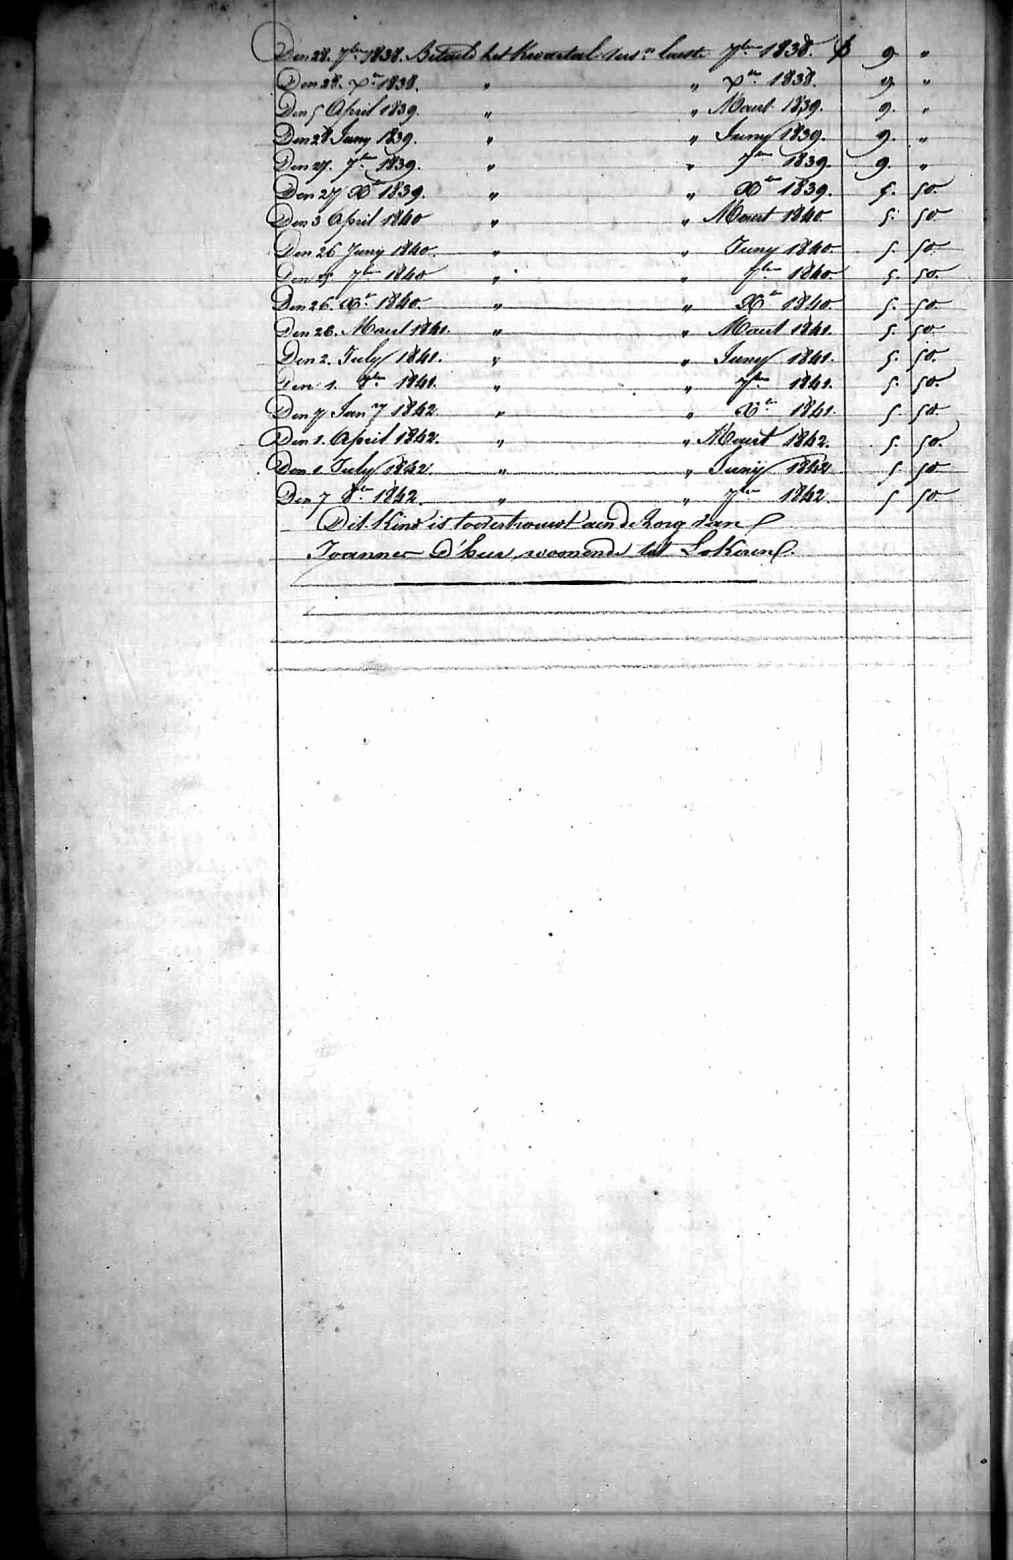 Den 28. 7ber 1838. Betaeld het kwartael vers.n laest 7ber 1838. 9 "
Den 28. Xer 1838. " " Xer 1838. 9 "
Den 5 April 1839. " " Maert 1839. 9. "
Den 28 Juny 1839. " " Juny 1839. 9. "
Den 27. 7er 1839. " " 7er 1839. 9. "
Den 27 Xer 1839. " " Xer 1839. 5. 50
Den 3 April 1840 " " Maert 1840 5. 50
Den 26 Juny 1840. " " Juny 1840 5. 50
Den 7ber 1840 " " 7ber 1840 5. 50.
Den 26. Xer 1840. " " Xer 1840 5. 50
Den 26. Maert 1841. " " Maert 1841. 5. 50
Den 2. July 1841. " " Juny 1841. 5. 50.
Den 1. 8er 1841. " " 7ber 1841. 5. 50.
Den 7 Jan.y 1842. " " Xer 1841. 5. 50
Den 1. April 1842. " " Maert 1842. 5. 50.
Den 1 July 1842. " " Junij 1842 5. 50
Den 7 8er 1842. " " 7ber 1842. 5 50
Dit kind is toevertrouwt aen de zorg van
Joannes d'heer woonende tot Lokeren.